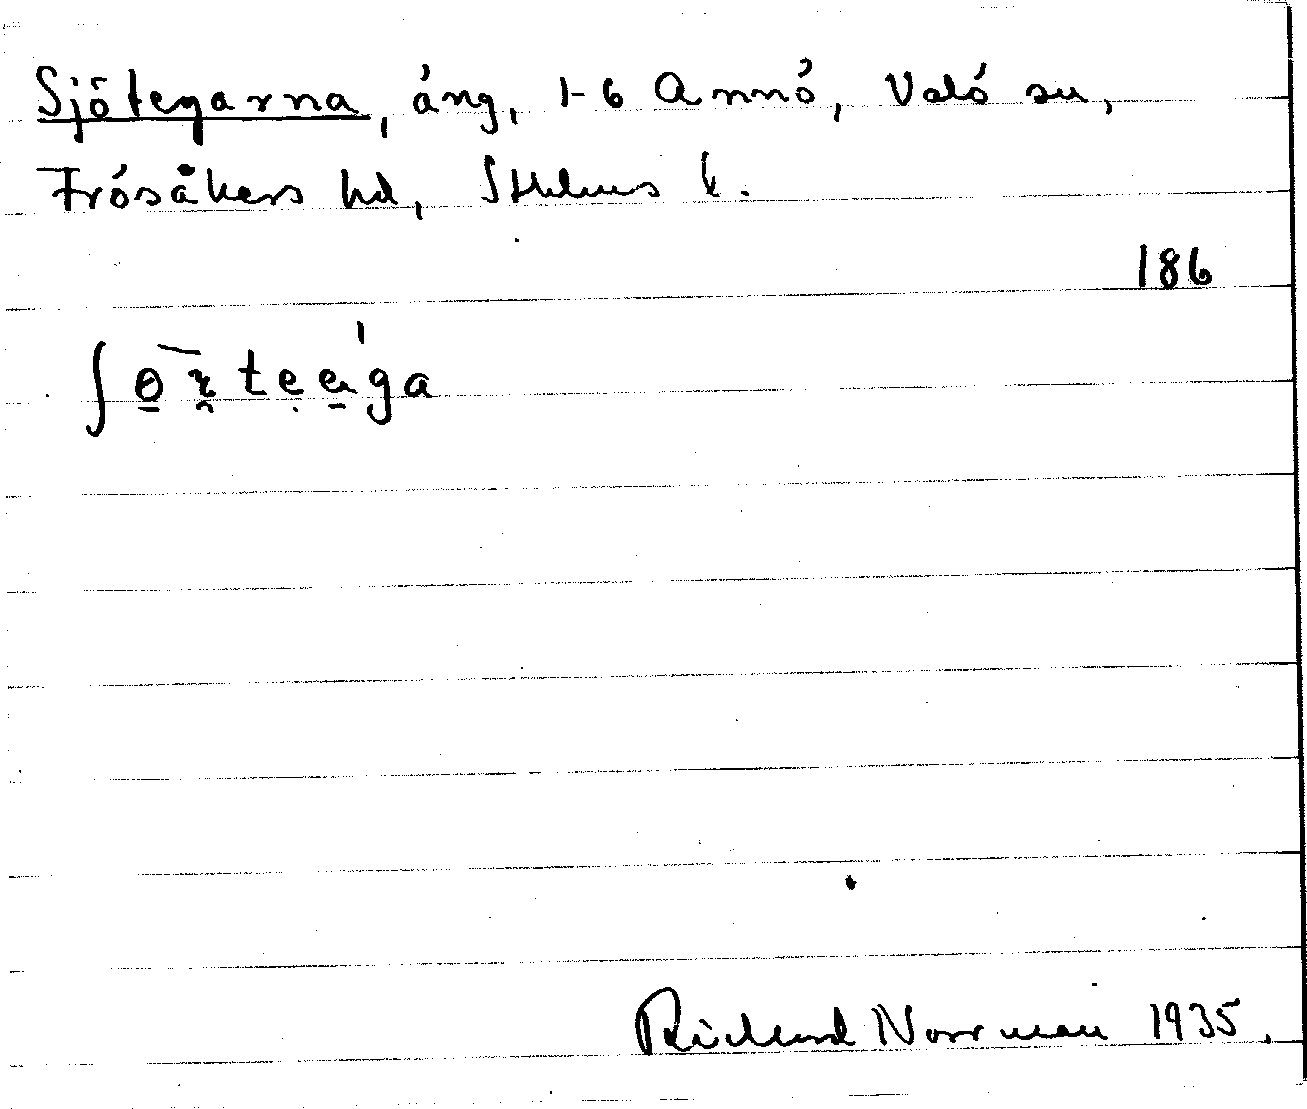 Sjötegarna, äng, 1-6 Annö, Valö sn,
Frösåkers hd, Sthlms l.
186
Rickard Norrman 1935.